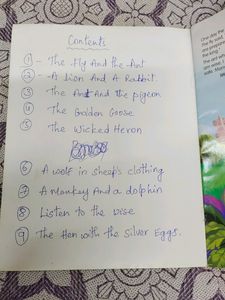 Contents
① - The Fly And the Ant
② - A Lion And A Rabbit
③ The Ant And the pigeon
④ The Golden Goose
⑤ The Wicked Heron
⑥ A wolf in sheep's clothing
⑦ A Monkey And a dolphin
⑧ Listen to the wise
⑨ The Hen with the Silver Eggs.
One day the